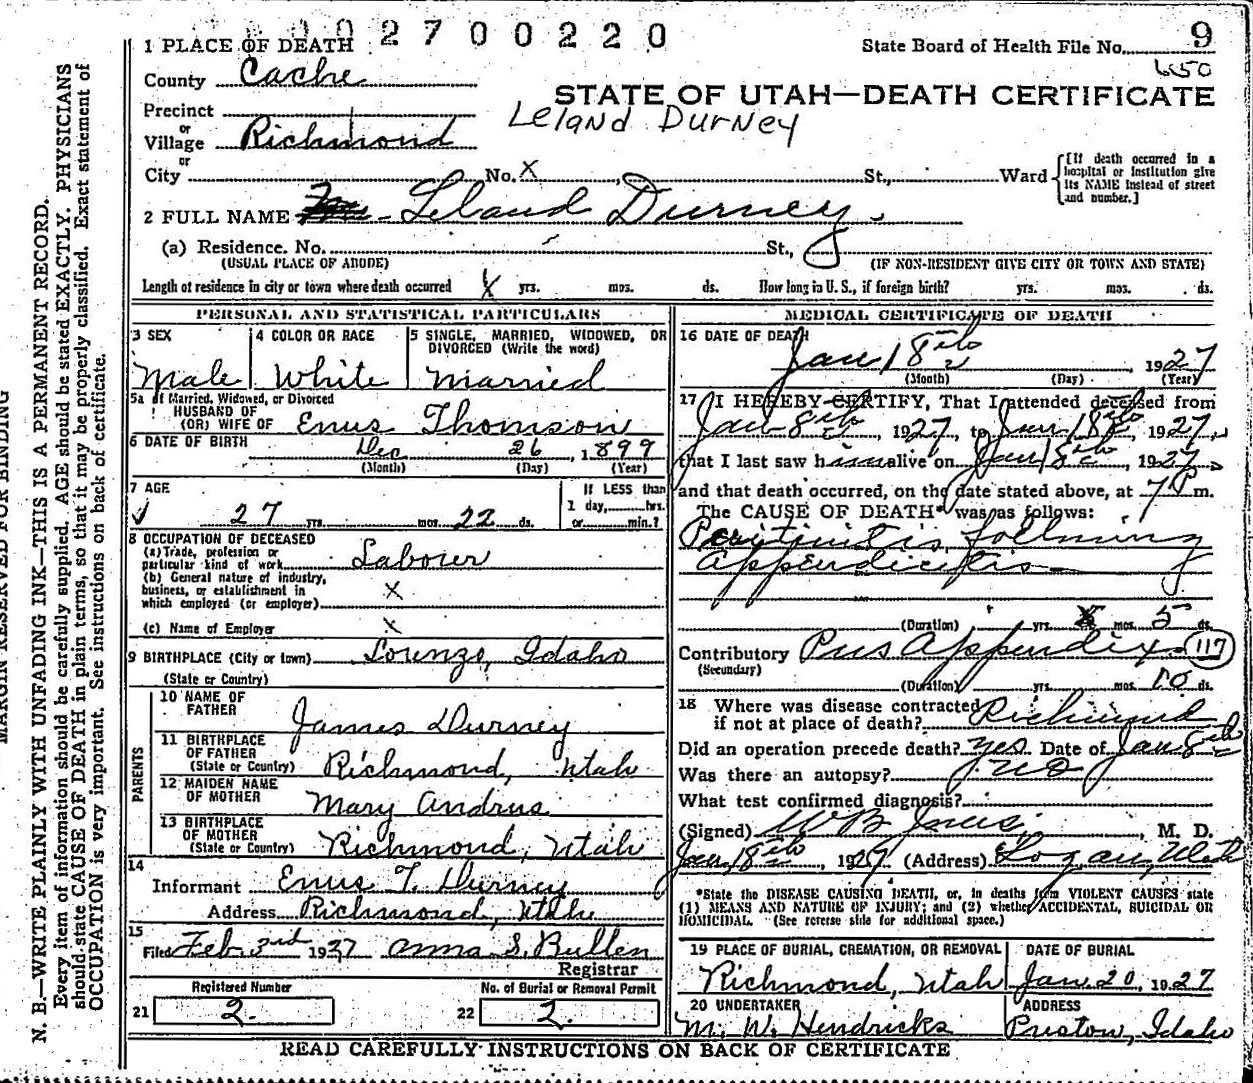 2700220
1 PLACE OF DEATH
State Board of Health File No. 9
650
County Cache
STATE OF UTAH—DEATH CERTIFICATE
Leland Durney
Precinct
or
Village Richmond
or
City No. X St., Ward
[If death occurred in a hospital or institution give its NAME instead of street and number.]
2 FULL NAME Leland Durney.
(a) Residence. No. St.,
(USUAL PLACE OF ABODE) (IF NON-RESIDENT GIVE CITY OR TOWN AND STATE)
Length of residence in city or town where death occurred X yrs. mos. ds. How long in U. S., if foreign birth? yrs. mos. ds.
PERSONAL AND STATISTICAL PARTICULARS
3 SEX
Male
4 COLOR OR RACE
White
5 SINGLE, MARRIED, WIDOWED, OR DIVORCED (Write the word)
Married
5a If Married, Widowed, or Divorced
HUSBAND OF
(OR) WIFE OF Enus Thomson
6 DATE OF BIRTH Dec 26, 1899
(Month) (Day) (Year)
7 AGE
27 yrs. mos. 22 ds.
If LESS than
1 day, hrs.
or min.?
8 OCCUPATION OF DECEASED
(a) Trade, profession or
particular kind of work Labourer
(b) General nature of industry,
business, or establishment in
which employed (or employer) X
(c) Name of Employer X
9 BIRTHPLACE (City or town) Lorenzo, Idaho
(State or Country)
PARENTS
10 NAME OF
FATHER James Durney
11 BIRTHPLACE
OF FATHER
(State or Country) Richmond, Utah
12 MAIDEN NAME
OF MOTHER Mary Andrus
13 BIRTHPLACE
OF MOTHER
(State or Country) Richmond, Utah
14
Informant Enus T. Durney
Address Richmond, Utah
15
Filed Feb. 3rd 1927 Anna S. Bullen
Registrar
Registered Number
21 2.
No. of Burial or Removal Permit
22 2.
MEDICAL CERTIFICATE OF DEATH
16 DATE OF DEATH
Jan 18th 1927
(Month) (Day) (Year)
17 I HEREBY CERTIFY, That I attended deceased from
Jan 8th, 1927, to Jan 18th, 1927,
that I last saw him alive on Jan 18th, 1927,
and that death occurred, on the date stated above, at 7 P m.
The CAUSE OF DEATH* was as follows:
Peritinitis following
Appendicitis
(Duration) yrs. mos. 5 ds.
Contributory Pus Appendix 117
(Secondary)
(Duration) yrs. mos. 10 ds.
18 Where was disease contracted
if not at place of death? Richmond
Did an operation precede death? yes. Date of Jan 8th
Was there an autopsy? no
What test confirmed diagnosis?
(Signed) W B , M. D.
Jan 18th, 1927 (Address) Logan, Utah
*State the DISEASE CAUSING DEATH, or, in deaths from VIOLENT CAUSES state
(1) MEANS AND NATURE OF INJURY; and (2) whether ACCIDENTAL, SUICIDAL OR
HOMICIDAL. (See reverse side for additional space.)
19 PLACE OF BURIAL, CREMATION, OR REMOVAL
Richmond, Utah
DATE OF BURIAL
Jan. 20, 1927
20 UNDERTAKER
M. W. Hendricks
ADDRESS
Preston, Idaho
READ CAREFULLY INSTRUCTIONS ON BACK OF CERTIFICATE
MARGIN RESERVED FOR BINDING
N. B.—WRITE PLAINLY WITH UNFADING INK—THIS IS A PERMANENT RECORD.
Every item of information should be carefully supplied. AGE should be stated EXACTLY. PHYSICIANS
should state CAUSE OF DEATH in plain terms, so that it may be properly classified. Exact statement of
OCCUPATION is very important. See instructions on back of certificate.